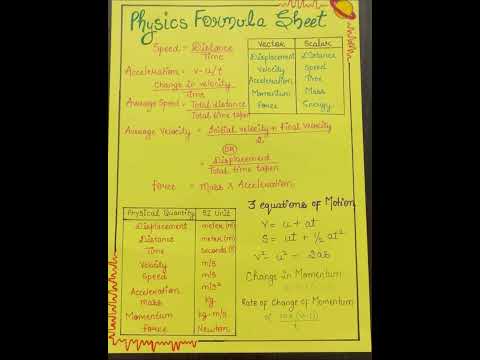 Physics Formula Sheet
Speed = Distance
Time
Acceleration = v-u/t
Change in velocity
Time
Average Speed = Total distance
Total time taken
Vector Scalar
Displacement Distance
Velocity Speed
Acceleration Time
Momentum Mass
Force Energy
Average Velocity = Initial velocity + Final velocity
2
OR
= Displacement
Total time taken
Force = Mass x Acceleration
Physical Quantity SI Unit
Displacement meter (m)
Distance meter (m)
Time seconds (s)
Velocity m/s
Speed m/s
Acceleration m/s²
Mass kg
Momentum kg-m/s
Force Newton
3 equations of Motion
V = u + at
S = ut + 1/2 at²
V² - u² = 2as
Change in Momentum
Rate of Change of Momentum